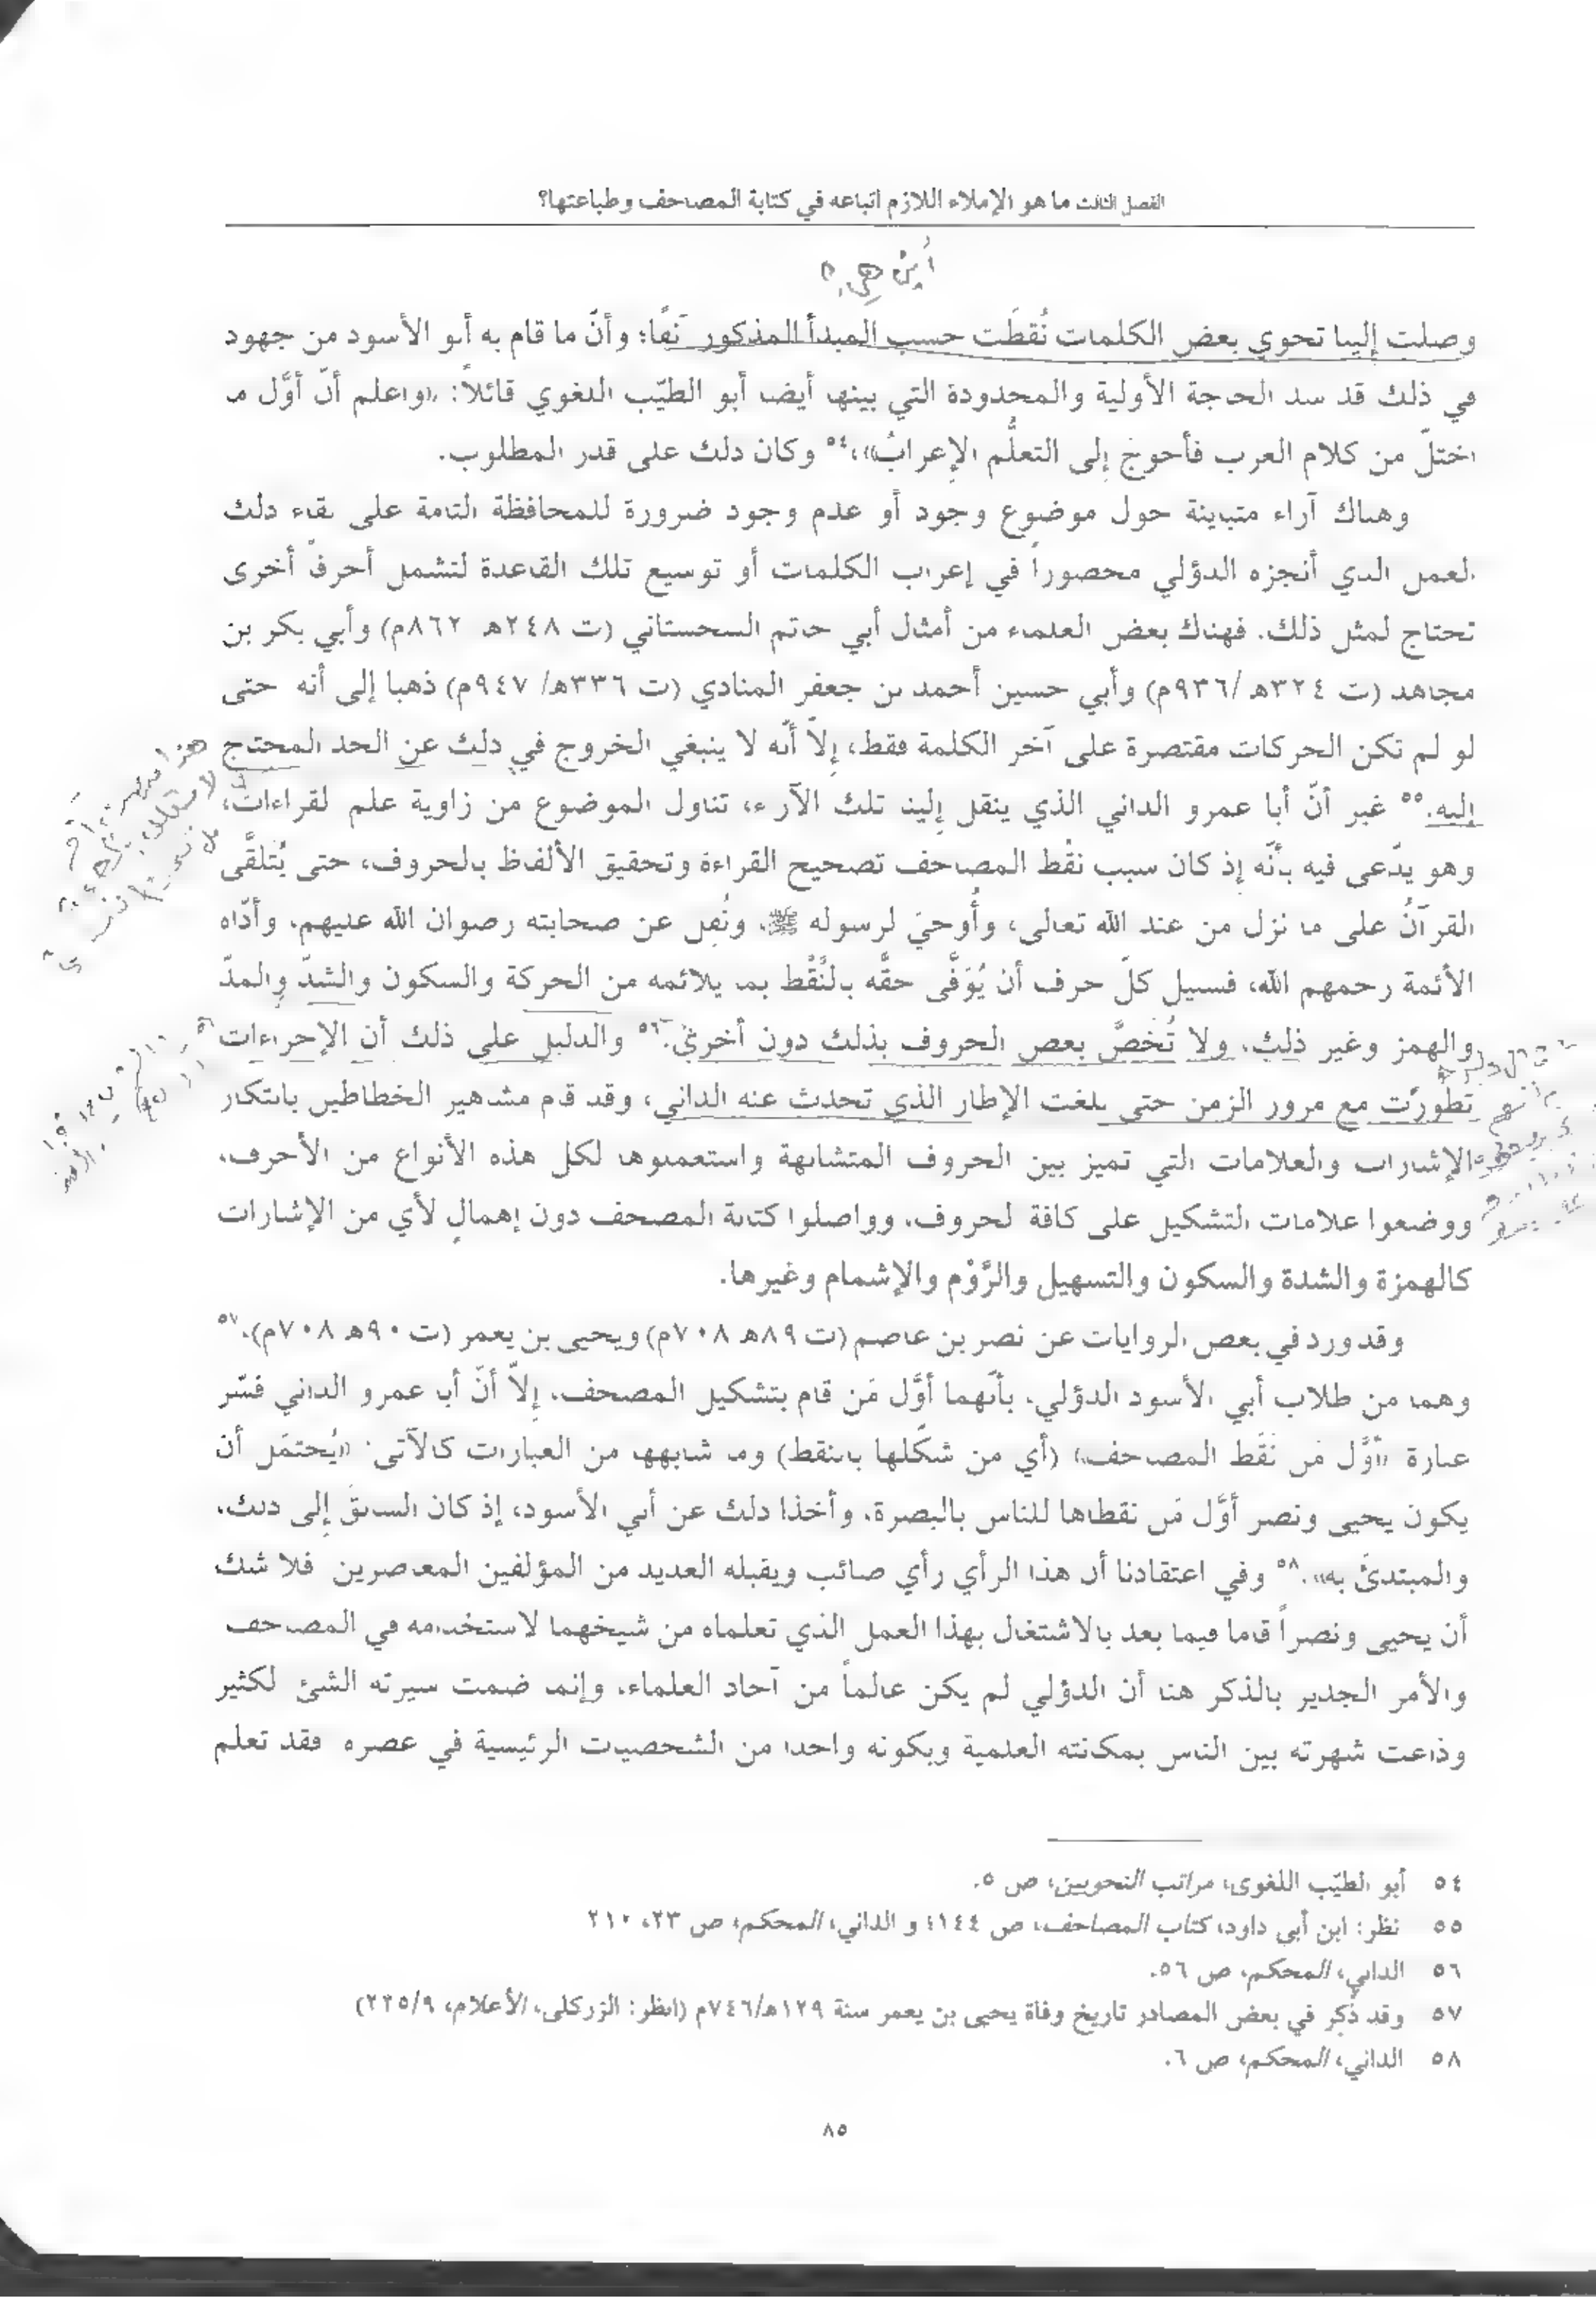 الفصل الثالث ما هو الإملاء اللازم اتباعه في كتابة المصاحف وطباعتها؟
أين هي؟
وصلت إلينا تحوي بعض الكلمات نُقطَت حسب المبدأ المذكور آنفًا؛ وأنّ ما قام به أبو الأسود من جهود
في ذلك قد سد الحاجة الأولية والمحدودة التي بينها أيضا أبو الطيّب اللغوي قائلاً: «واعلم أنّ أوَّل ما
اختلّ من كلام العرب فأحوجَ إلى التعلُّم الإعرابُ»،٥٤ وكان ذلك على قدر المطلوب.
وهناك آراء متباينة حول موضوع وجود أو عدم وجود ضرورة للمحافظة التامة على بقاء ذلك
العمل الذي أنجزه الدؤلي محصوراً في إعراب الكلمات أو توسيع تلك القاعدة لتشمل أحرفً أخرى
تحتاج لمثل ذلك. فهناك بعض العلماء من أمثال أبي حاتم السجستاني (ت ٢٤٨هـ ٨٦٢م) وأبي بكر بن
مجاهد (ت ٣٢٤هـ/٩٣٦م) وأبي حسين أحمد بن جعفر المنادي (ت ٣٣٦هـ/ ٩٤٧م) ذهبا إلى أنه حتى
لو لم تكن الحركات مقتصرة على آخر الكلمة فقط، إلاّ أنّه لا ينبغي الخروج في ذلك عن الحد المحتج
إليه.٥٥ غير أنّ أبا عمرو الداني الذي ينقل إلينا تلك الآراء، تناول الموضوع من زاوية علم القراءات،
وهو يدّعى فيه بأنّه إذ كان سبب نقْط المصاحف تصحيح القراءة وتحقيق الألفاظ بالحروف، حتى يُتلقَّى
القرآنُ على ما نزل من عند الله تعالى، وأُوحيَ لرسوله ﷺ، ونُقِل عن صحابته رضوان الله عليهم، وأدّاه
الأئمة رحمهم الله، فسبيل كلّ حرف أن يُوَفَّى حقَّه بالنَّقْط بما يلائمه من الحركة والسكون والشدّ والمدّ
والهمز وغير ذلك، ولا تُخَصَّ بعض الحروف بذلك دون أخرىٰ.٥٦ والدليل على ذلك أن الإجراءات
تطوّرت مع مرور الزمن حتى بلغت الإطار الذي تحدث عنه الداني، وقد قام مشاهير الخطاطين بابتكار
الإشارات والعلامات التي تميز بين الحروف المتشابهة واستعملوها لكل هذه الأنواع من الأحرف،
ووضعوا علامات التشكيل على كافة الحروف، وواصلوا كتابة المصحف دون إهمالٍ لأي من الإشارات
كالهمزة والشدة والسكون والتسهيل والرَّوْم والإشمام وغيرها.
وقد ورد في بعض الروايات عن نصر بن عاصم (ت ٨٩هـ ٧٠٨م) ويحيى بن يعمر (ت ٩٠هـ ٧٠٨م)،٥٧
وهما من طلاب أبي الأسود الدؤلي، بأنّهما أوَّل مَن قام بتشكيل المصحف، إلاّ أنّ أبا عمرو الداني فسّر
عبارة «أوَّل مَن نَقَط المصاحف» (أي من شكّلها بالنقط) وما شابهها من العبارات كالآتى: «يُحتمَل أن
يكون يحيى ونصر أوَّل مَن نقطاها للناس بالبصرة، وأخذا ذلك عن أبي الأسود، إذ كان السابقَ إلى ذلك،
والمبتدئَ به».٥٨ وفي اعتقادنا أن هذا الرأي رأي صائب ويقبله العديد من المؤلفين المعاصرين فلا شك
أن يحيى ونصراً قاما فيما بعد بالاشتغال بهذا العمل الذي تعلماه من شيخهما لاستخدامه في المصاحف
والأمر الجدير بالذكر هنا أن الدؤلي لم يكن عالماً من آحاد العلماء، وإنما ضمت سيرته الشئ الكثير
وذاعت شهرته بين الناس بمكانته العلمية وبكونه واحدا من الشخصيات الرئيسية في عصره فقد تعلم
٥٤ أبو الطيّب اللغوى، مراتب النحويين، ص ٥.
٥٥ نظر: ابن أبى داود، كتاب المصاحف، ص ١٤٤؛ و الداني، المحكم، ص ٢٣، ٢١٠
٥٦ الداني، المحكم، ص ٥٦.
٥٧ وقد ذُكِر في بعض المصادر تاريخ وفاة يحيى بن يعمر سنة ١٢٩هـ/٧٤٦م (انظر: الزركلى، الأعلام، ٢٢٥/٩)
٥٨ الداني، المحكم، ص ٦.
٨٥